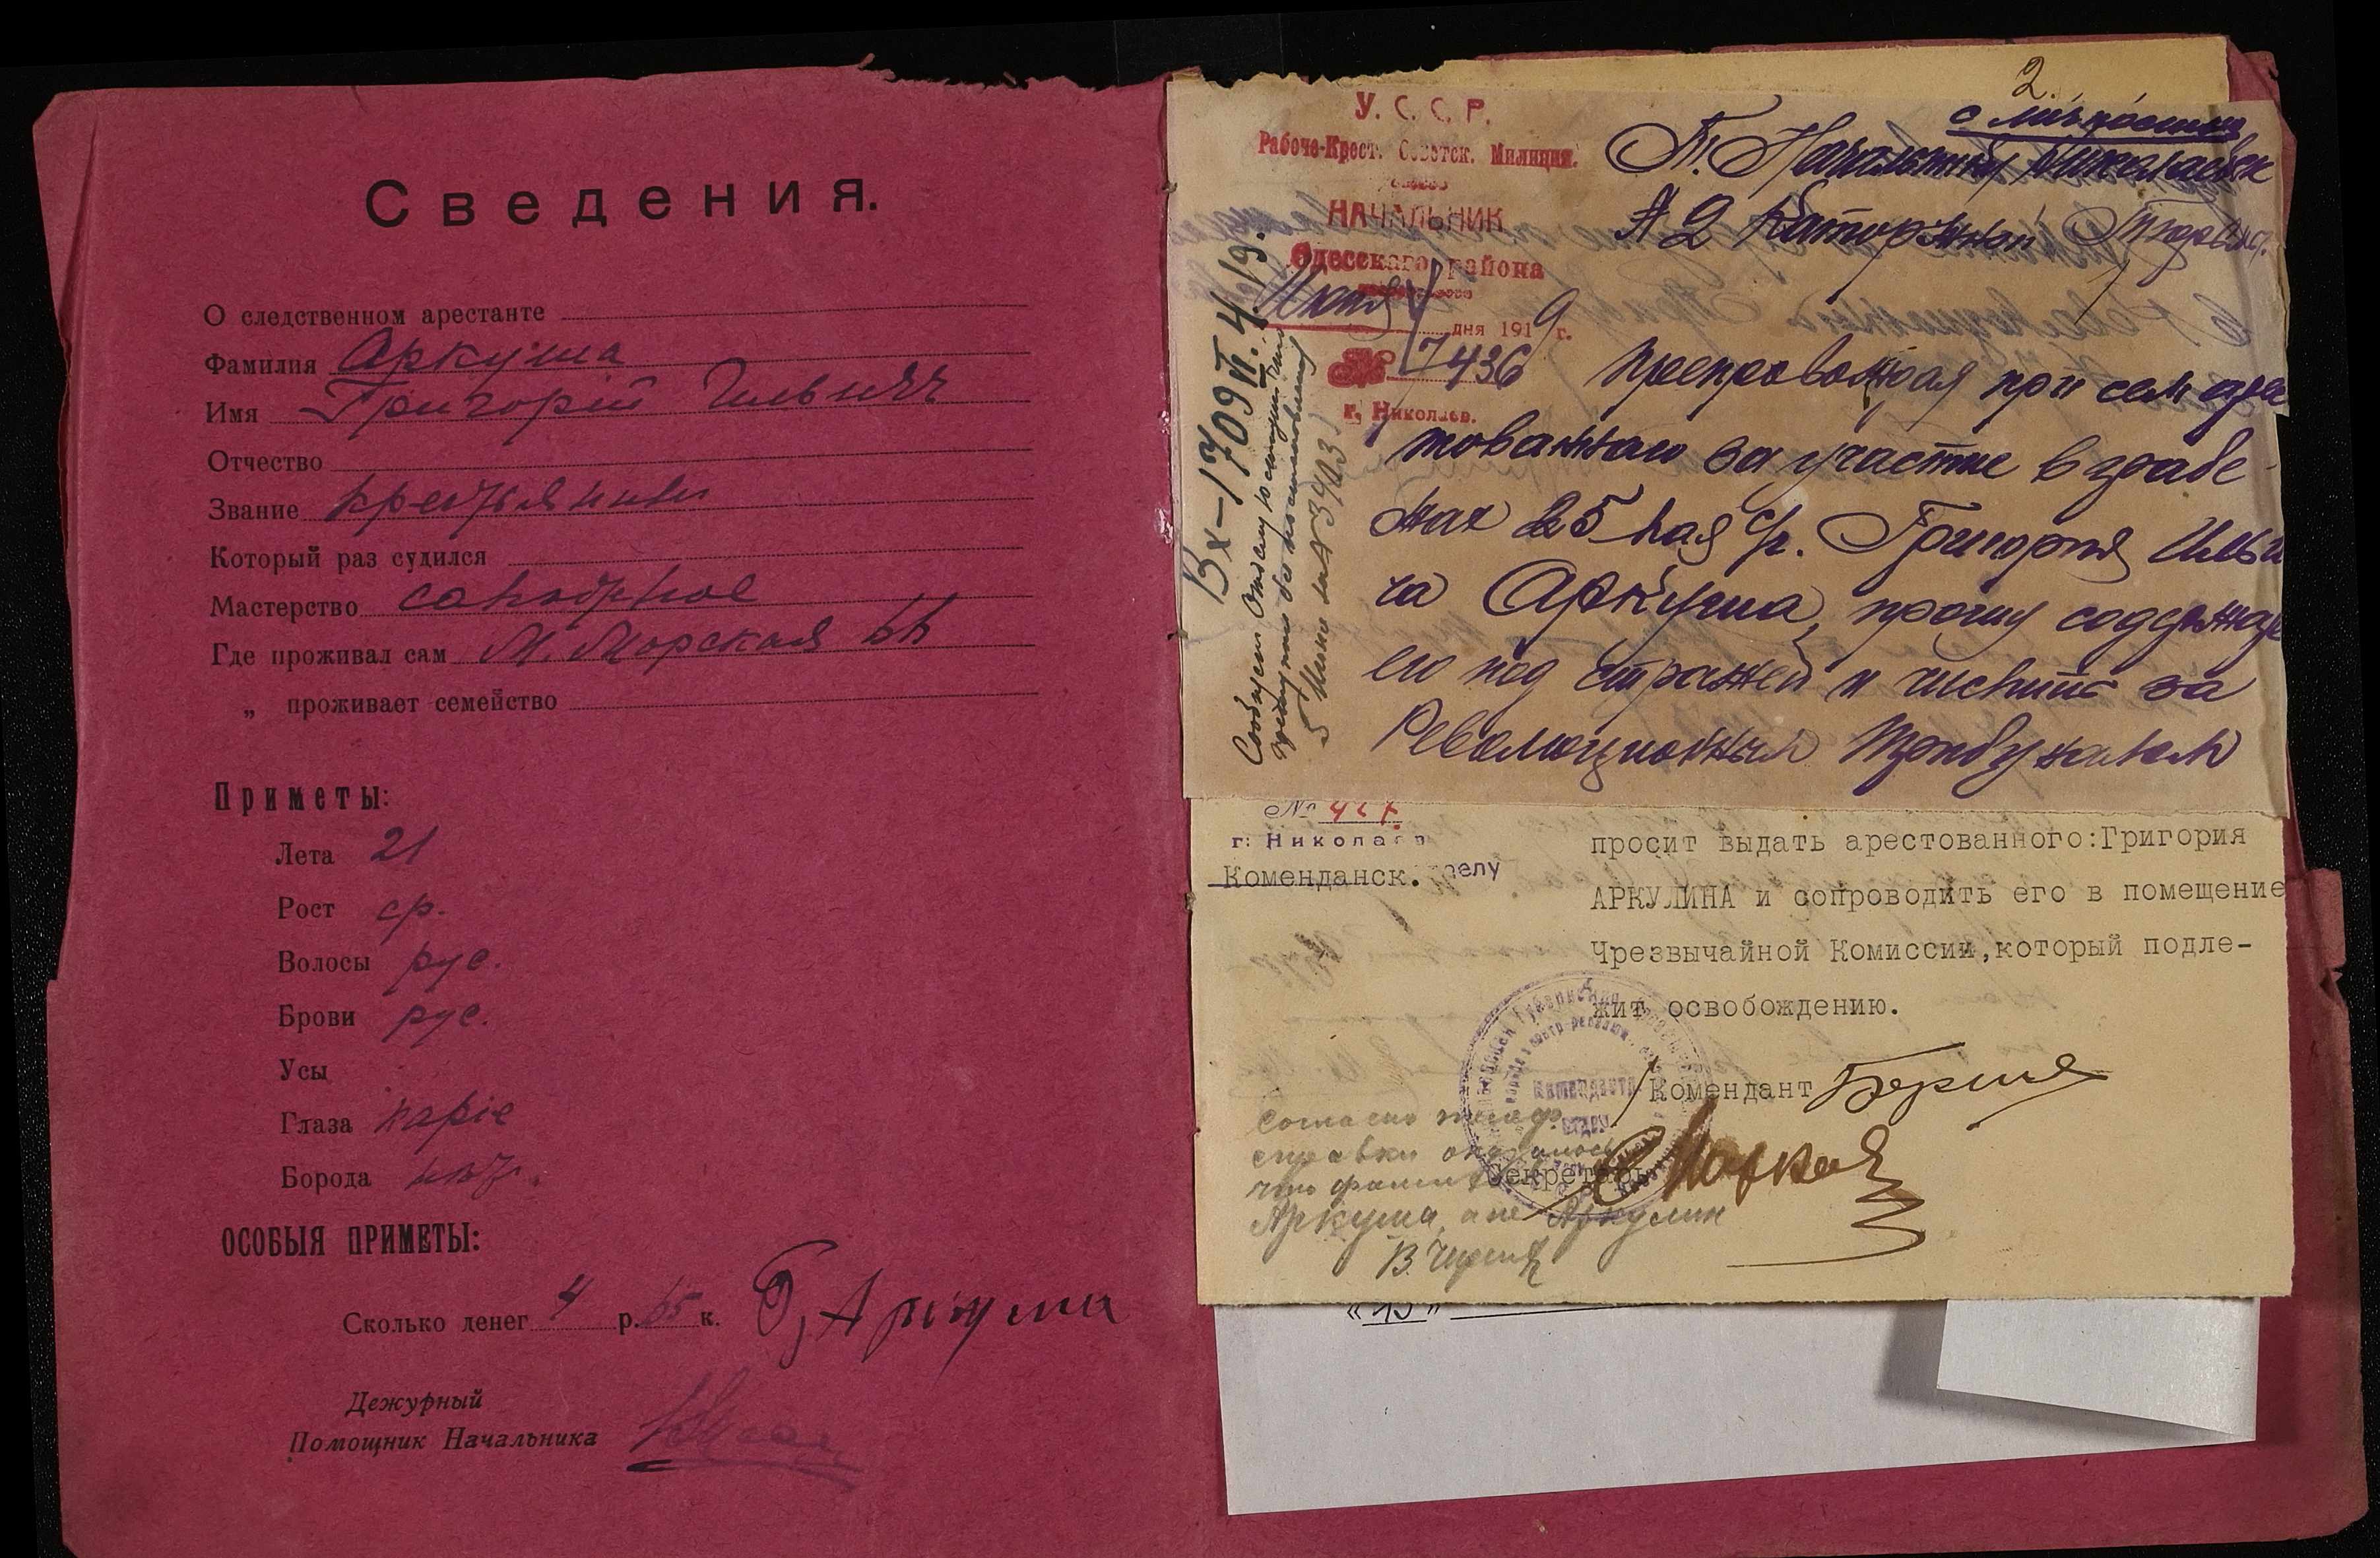 Сведения.
О следственном арестанте
Фамилия Аркуша
Имя Григорій Ильичъ
Отчество
Звание крестьянин
Который раз судился
Мастерство
Где проживал сам М. Морская
„ проживает семейство
Приметы:
Лета 21
Рост ср.
Волосы рус.
Брови рус.
Усы
Глаза каріе
Борода нѣт.
ОСОБЫЯ ПРИМЕТЫ:
Сколько денег 4 р. 65 к. Аркуша
Дежурный
Помощник Начальника
2.
У. С. С. Р.
Рабоче-Крест. Советск. Милиция.
НАЧАЛЬНИК
Одесскаго района
Июня 4 дня 1919 г.
№ 7436
г. Николаев.
Вх-1709 4/VI 19.
Т. Начальнику Николаевск
Каторжной
Препровождая при сем арес
тованнаго за участие в грабе
жах 25 мая с/г. Григория Ильи
ча Аркуша, прошу содержать
его под стражей и числить за
Революционным Трибуналом
№ 427
г. Николаев
Коменданск. отделу
просит выдать арестованного:Григория
АРКУЛИНА и сопроводить его в помещение
Чрезвычайной Комиссии,который подле-
жит освобождению.
Комендант
Секретарь
Согласно телеф.
справки оказалось
что фамил
Аркуша, а не Аркулин